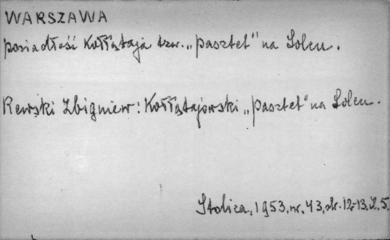 WARSZAWA
posiadłość Kołłątaja tzw. „pasztet" na Solcu.
Rewski Zbigniew: Kołłątajowski „pasztet" na Solcu.
Stolica, 1953, nr. 43, st. 12-13, il. 5.